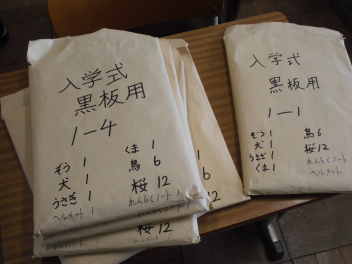 入学式
黒板用
1-4
ぞう 1
犬 1
うさぎ 1
ヘルメット 1
くま 1
鳥 6
桜 12
れんらくノート 1
桜 12
ヘルメット 1
入学式
黒板用
1-1
ぞう 1
犬 1
うさぎ 1
くま 1
鳥 6
桜 12
れんらくノート
ヘルメット